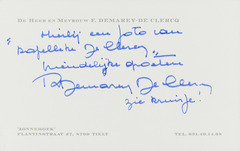 DE HEER EN MEVROUW P. DEMAREY-DE CLERCK
Hierbij een foto van
Kapelleke De Clercq
Vriendelijke groeten
Demarey De Clercq
zie kruisje!
"DONNEHOEK"
PLANTIJNSTRAAT 27, 8700 TIELT
TEL. 051.40.14.00